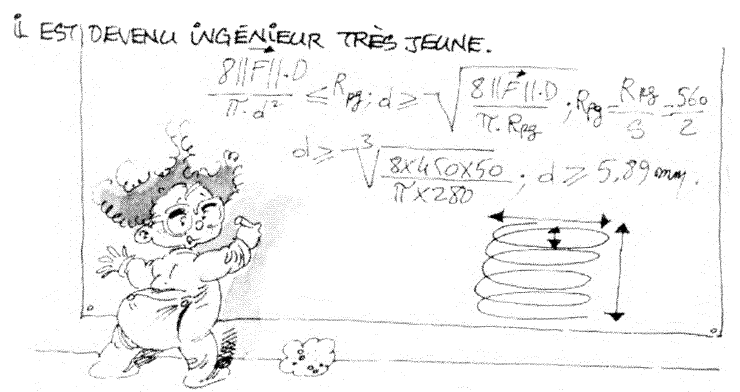 iL EST DEVENU iNGÉNiEUR TRÈS JEUNE.
8||F⃗||.D / π.d² ≤ Rpg; d ≥ √(8||F⃗||.D / π.Rpg); Rpg = Rpg / S = 560 / 2
d ≥ ³√(8x450x50 / πx280); d ≥ 5,89 mm.